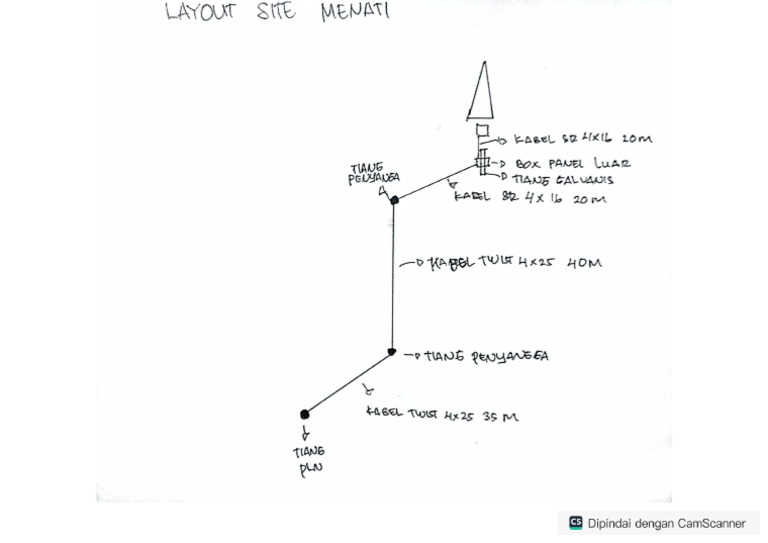 LAYOUT SITE MENATI
KABEL SR 4X16 20M
BOX PANEL LUAR
TIANG GALVANIS
KABEL SR 4X16 20M
TIANG
PENYANGGA
KABEL TWIST 4X25 40M
TIANG PENYANGGA
KABEL TWIST 4X25 35 M
TIANG
PLN
CS Dipindai dengan CamScanner